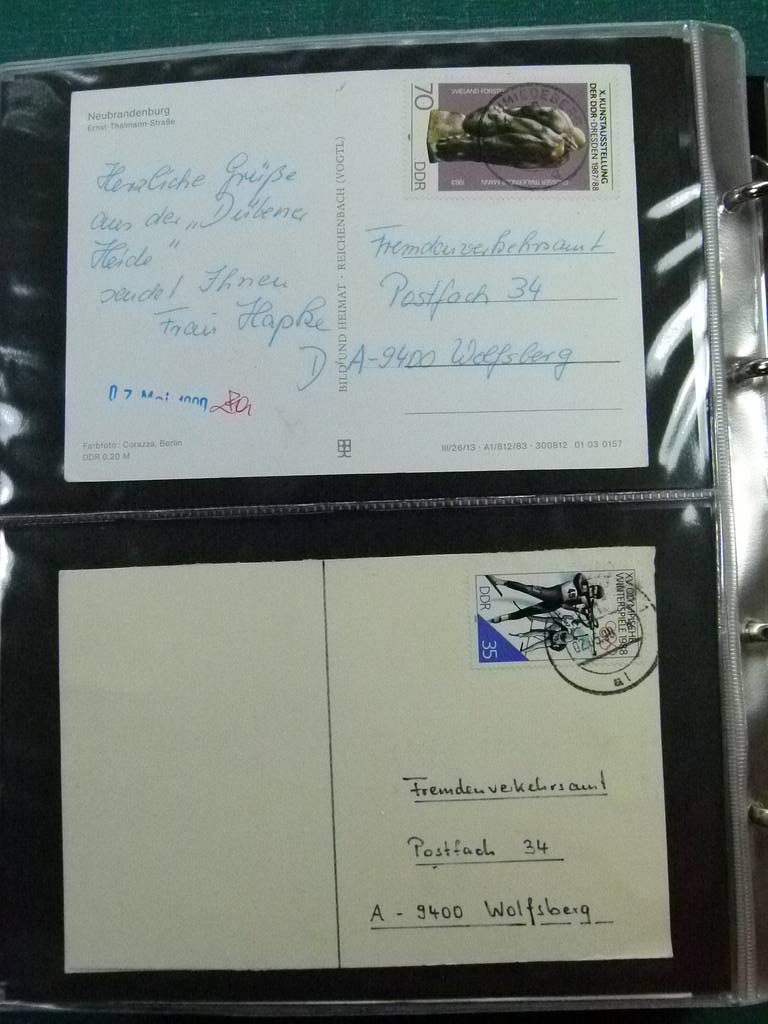 Neubrandenburg
Ernst-Thälmann-Straße
Herzliche Grüße
aus der „Dübener
Heide"
sendet Ihnen
Frau Hapke
07. Mai
Farbfoto: Corazza, Berlin
DDR 0,20 M
BILD UND HEIMAT · REICHENBACH (VOGTL)
70
DDR
WIELAND FÖRSTER
GROSSER TRAUERNDER MANN
1983
X. KUNSTAUSSTELLUNG
DER DDR · DRESDEN 1987/88
Fremdenverkehrsamt
Postfach 34
D A-9400 Wolfsberg
III/26/13 · A1/812/83 · 300812 01 03 0157
DDR
35
XV. OLYMPISCHE
WINTERSPIELE 1988
Fremdenverkehrsamt
Postfach 34
A - 9400 Wolfsberg